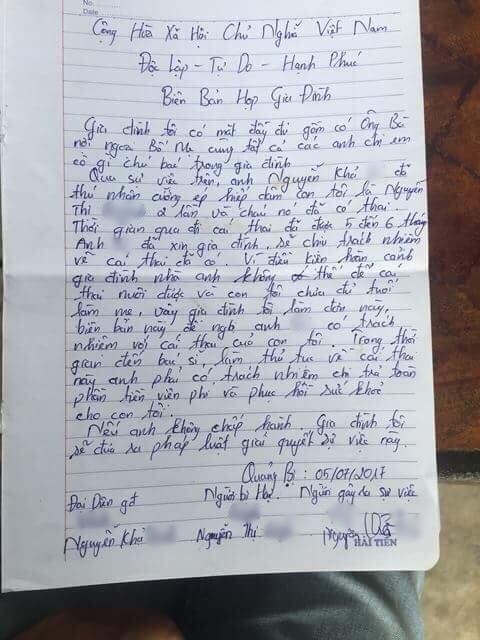 No.
Date
Cộng Hòa Xã Hội Chủ Nghĩa Việt Nam
Độc Lập - Tự Do - Hạnh Phúc
Biên Bản Họp Gia Đình
Gia đình tôi có mặt đầy đủ gồm có Ông Bà
nội ngoại Bố Mẹ cùng tất cả các anh chị em
cô gì chú bác trong gia đình.
Qua sự việc trên, anh Nguyễn Khả đã
thú nhận cưỡng ép hiếp dâm con tôi là Nguyễn
Thị 2 lần và cháu nó đã có thai.
Thời gian qua đi cái thai đã được 5 đến 6 tháng
Anh đã xin gia đình, sẽ chịu trách nhiệm
về cái thai đã có. Vì điều kiện hoàn cảnh
gia đình nhà anh không thể để cái
thai nuôi được và con tôi chưa đủ tuổi
làm mẹ, vậy gia đình tôi làm đơn này,
biên bản này đề nghị anh có trách
nhiệm với cái thai của con tôi. Trong thời
gian đến bác sĩ, làm thủ tục về cái thai
này anh phải có trách nhiệm chi trả toàn
phần tiền viện phí và phục hồi sức khỏe
cho con tôi.
Nếu anh không chấp hành. Gia đình tôi
sẽ đưa ra pháp luật giải quyết sự việc này.
Quảng Bị: 05/07/2017
Đại Diện gđ Người bị Hại. Người gây ra sự việc
Nguyễn Khả Nguyễn Thị Nguyễn
HẢI TIẾN